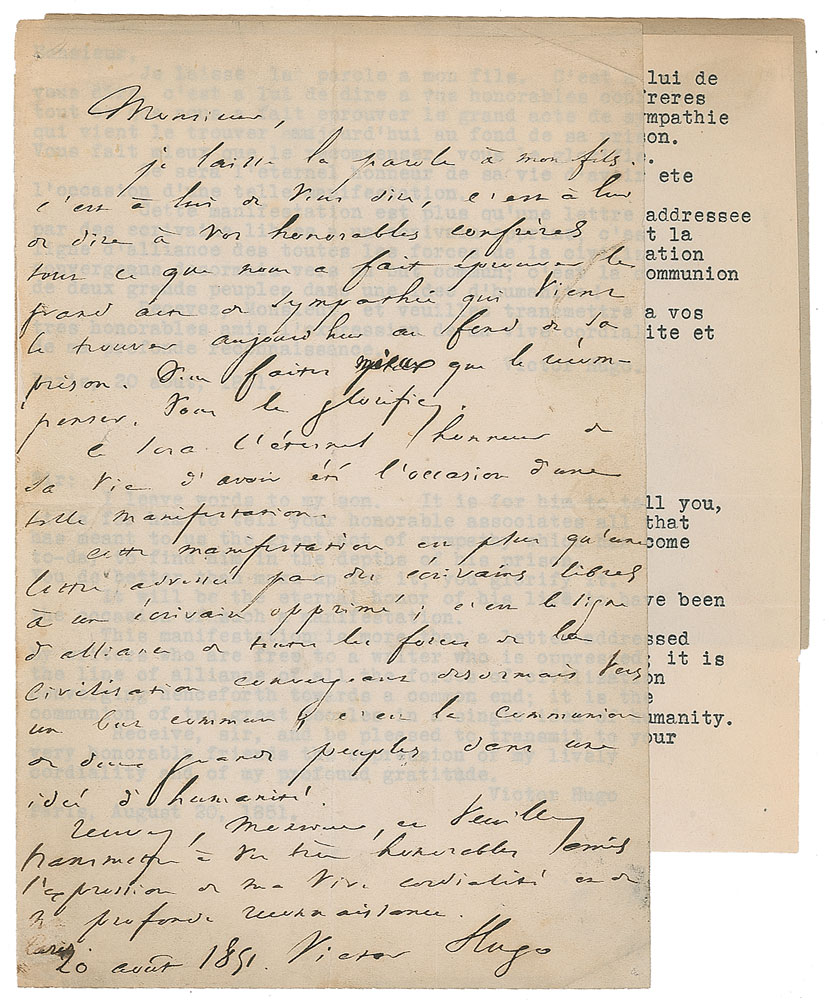 Monsieur,
je laisse la parole à mon fils.
c'est à lui de vous dire, c'est à lui
de dire à vos honorables confrères
tout ce que nous a fait éprouver le
grand acte de sympathie qui vient
le trouver aujourd'hui au fond de sa
prison. Vous faites mieux que le récom-
penser. Vous le glorifiez.
Ce sera l'éternel honneur de
sa vie d'avoir été l'occasion d'une
telle manifestation.
Cette manifestation est plus qu'une
lettre adressée par des écrivains libres
à un écrivain opprimé; c'est la ligne
d'alliance de toutes les forces de la
civilisation convergeant désormais vers
un but commun; c'est la communion
de deux grands peuples dans une
idée d'humanité.
recevez, Monsieur, et veuillez
transmettre à vos très honorables amis
l'expression de ma vive cordialité et de
profonde reconnaissance.
Paris
20 août 1851. Victor Hugo
lui de
freres
mpathie
son.
ete
addressee
t la
ation
ommunion
a vos
ite et
ll you,
that
come
ve been
ssed
; it is
on
e
umanity.
our
Monsieur,
Je laisse la parole a mon fils. C'est
Victor Hugo
Paris, August 20, 1851.